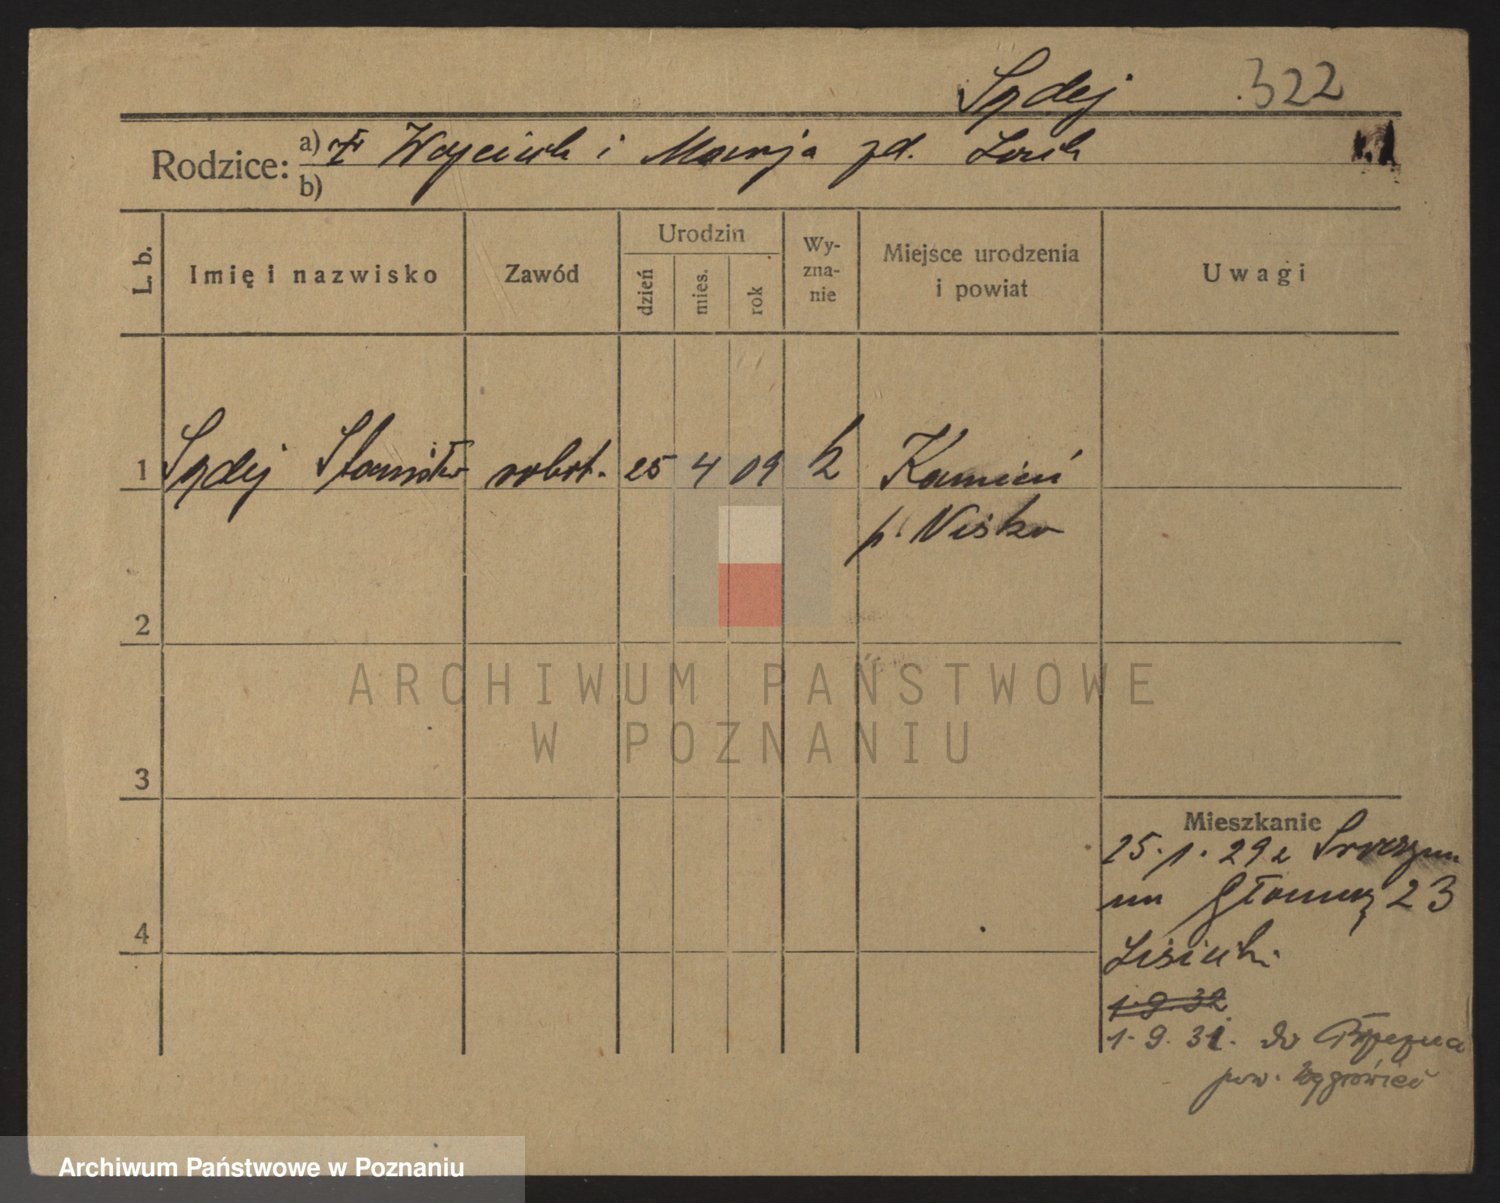 Sądej 322
Rodzice: a) Wojciech i Marja zd.
b)
L. b. Imię i nazwisko Zawód Urodzin dzień mies. rok Wyznanie Miejsce urodzenia i powiat Uwagi
1 Sądej Stanisław robot. 25 4 09 k Kamień
p. Nisko
2
ARCHIWUM PAŃSTWOWE
W POZNANIU
3
Mieszkanie
25.1.29 z
23
4
1.9.32
1.9.31. do
pow. Wągrowiec
Archiwum Państwowe w Poznaniu